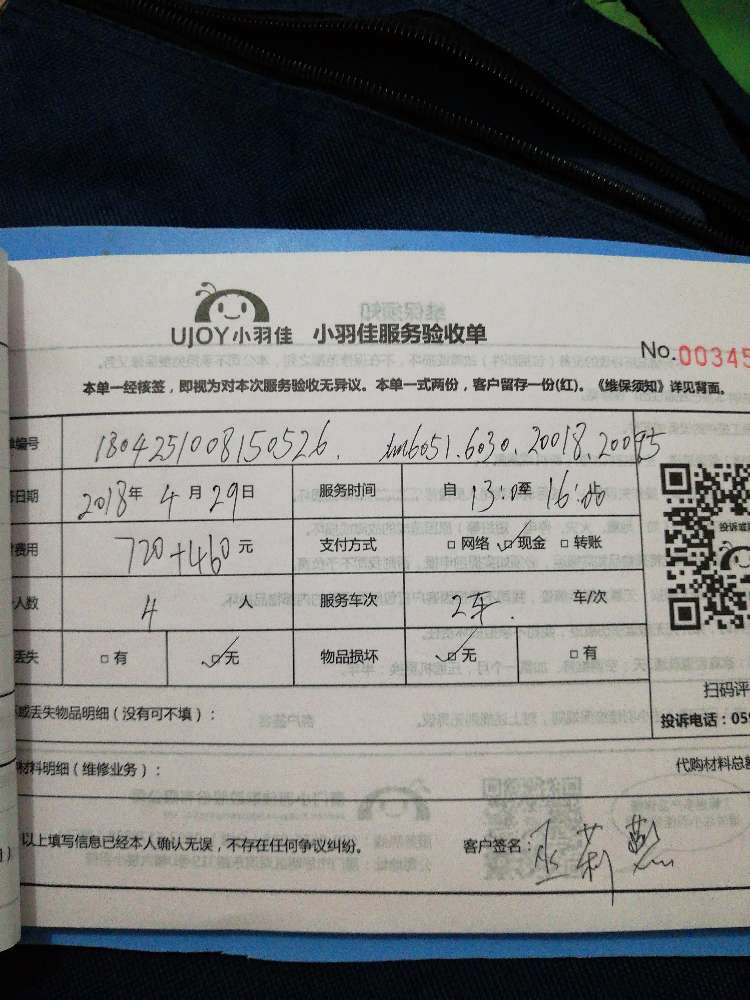 UJOY小羽佳 小羽佳服务验收单
No.00345
本单一经核签，即视为对本次服务验收无异议。本单一式两份，客户留存一份(红)。《维保须知》详见背面。
编号 1804251008150526. 6051.6030.20018.20095
日期 2018年 4月29日 服务时间 自13:0至16:止
费用 720+460元 支付方式 □网络 ☑现金 □转账
人数 4 人 服务车次 2车. 车/次
丢失 □有 ☑无 物品损坏 ☑无 □有
投诉或
扫码评
或丢失物品明细（没有可不填）：
投诉电话：059
材料明细（维修业务）：
代购材料总额
以上填写信息已经本人确认无误，不存在任何争议纠纷。 客户签名：